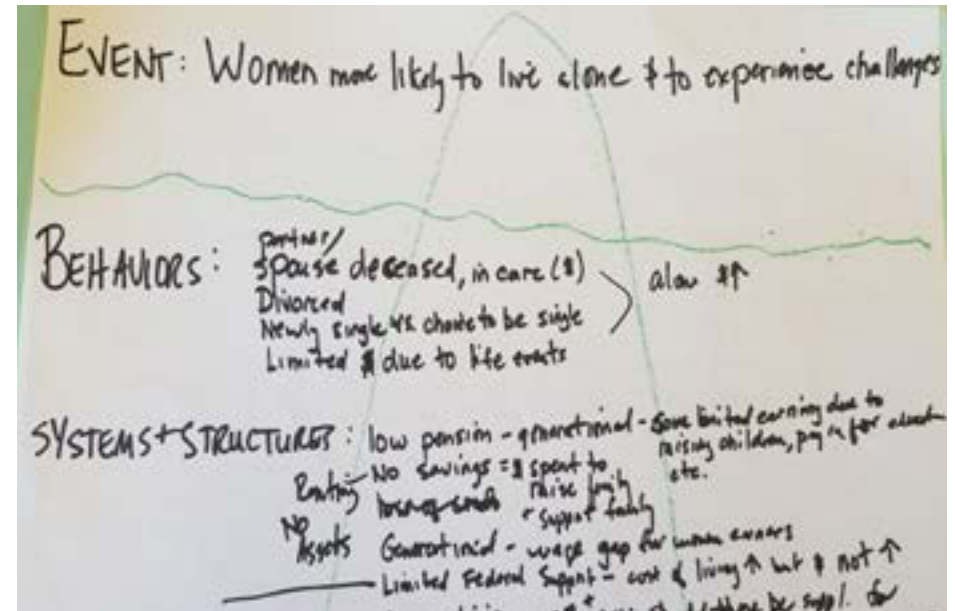 EVENT: Women more likely to live alone & to experience challenges
partner/
BEHAVIORS: spouse deceased, in care ($)
alone $↑
Divorced
Newly single vs. choice to be single
Limited $ due to life events
SYSTEMS + STRUCTURES: low pension - generational - some limited earning due to
raising children, paying for
etc.
Renting No savings = $ spent to
raise family
+ support family
No
Assets Generational - wage gap for women earners
Limited Federal Support - cost of living ↑ but $ not ↑
for